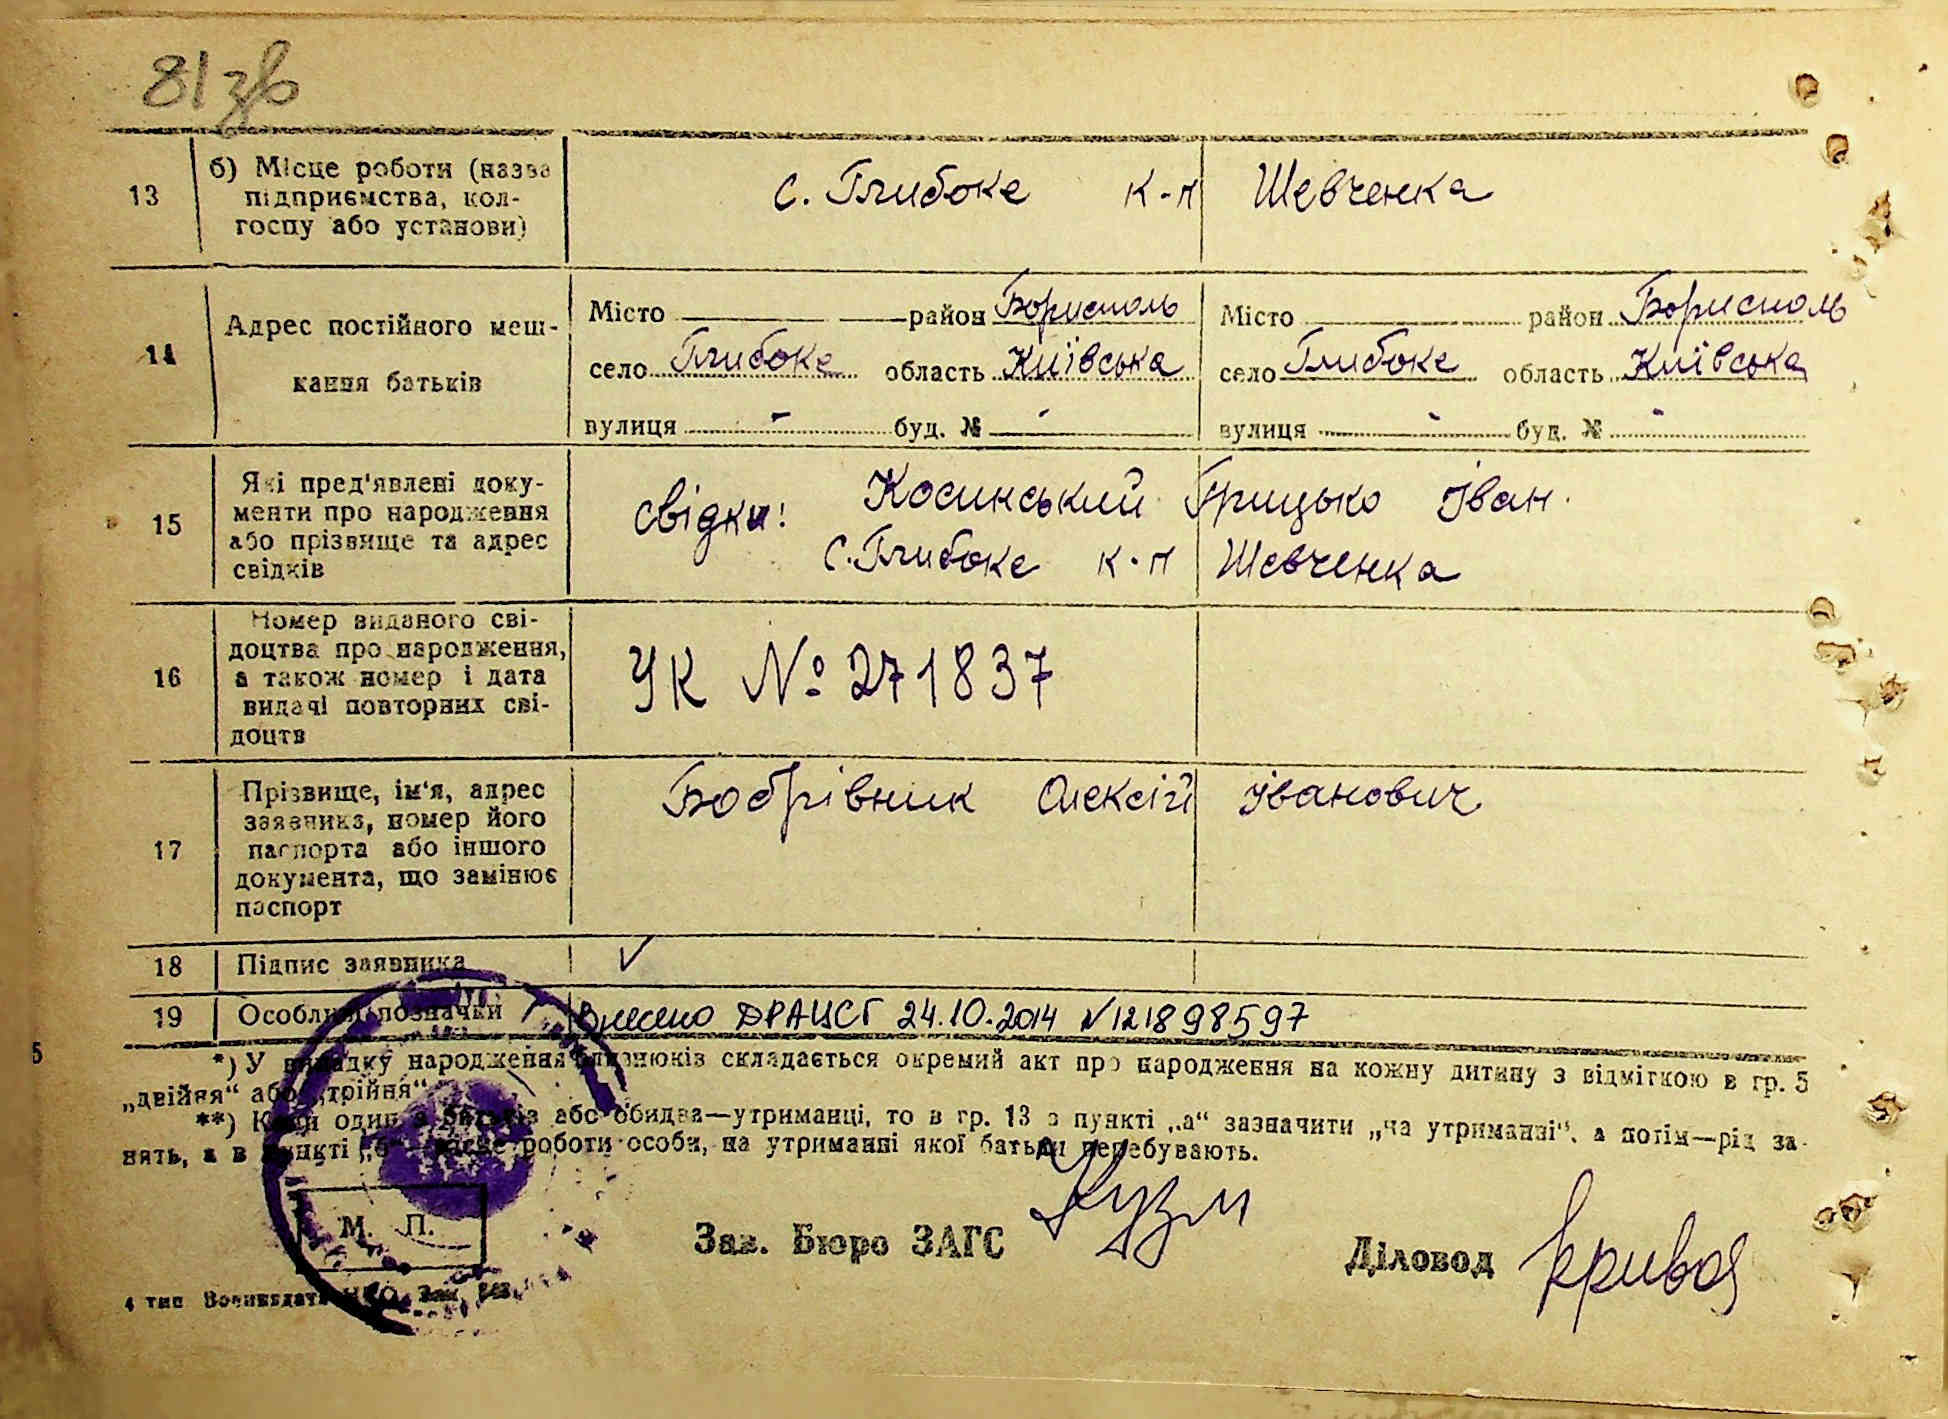 81зв
13 б) Місце роботи (назва підприємства, колгоспу або установи) с. Глибоке к-п Шевченка
14 Адрес постійного мешкання батьків
Місто район Бориспол село Глибоке область Київська вулиця - буд. № -
Місто район Бориспол село Глибоке область Київська вулиця - буд. № -
15 Які пред'явлені документи про народження або прізвище та адрес свідків
свідки: Косинський Грицько Іван.
с. Глибоке к-п Шевченка
16 Номер виданого свідоцтва про народження, а також номер і дата видачі повторних свідоцтв
УК № 271837
17 Прізвище, ім'я, адрес заявника, номер його паспорта або іншого документа, що замінює паспорт
Бобрівник Олексій Іванович
18 Підпис заявника ✓
19 Особливі позначки Внесено ДРАЦСГ 24.10.2014 №121898597
5
*) У випадку народження близнюків складається окремий акт про народження на кожну дитину з відміткою в гр. 5
„двійня“ або „трійня“
**) Коли один з батьків або обидва—утриманці, то в гр. 13 в пункті „а“ зазначити „на утриманні“, а потім—рід за-
нять, а в пункті „б“ місце роботи особи, на утриманні якої батьки перебувають.
М. П.
Зав. Бюро ЗАГС Кузм
Діловод Кривая
4 тип